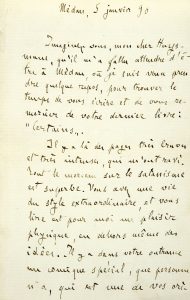 Médan, 5 janvier 90
Imaginez-vous, mon cher Huys-
mans, qu'il m'a fallu attendre d'ê-
tre à Médan, où je suis venu pren-
dre quelque repos, pour trouver le
temps de vous écrire et de vous re-
mercier de votre dernier livre:
"Certains".
Il y a là des pages très
et très intenses, qui m'ont ravi.
Tout le morceau sur le satanisme
est superbe. Vous avez une vie
du style extraordinaire, et vous
lire est pour moi un plaisir
physique, en dehors même des
idées. Il y a dans votre outrance
un comique spécial, que personne
n'a, qui est une de vos ori-